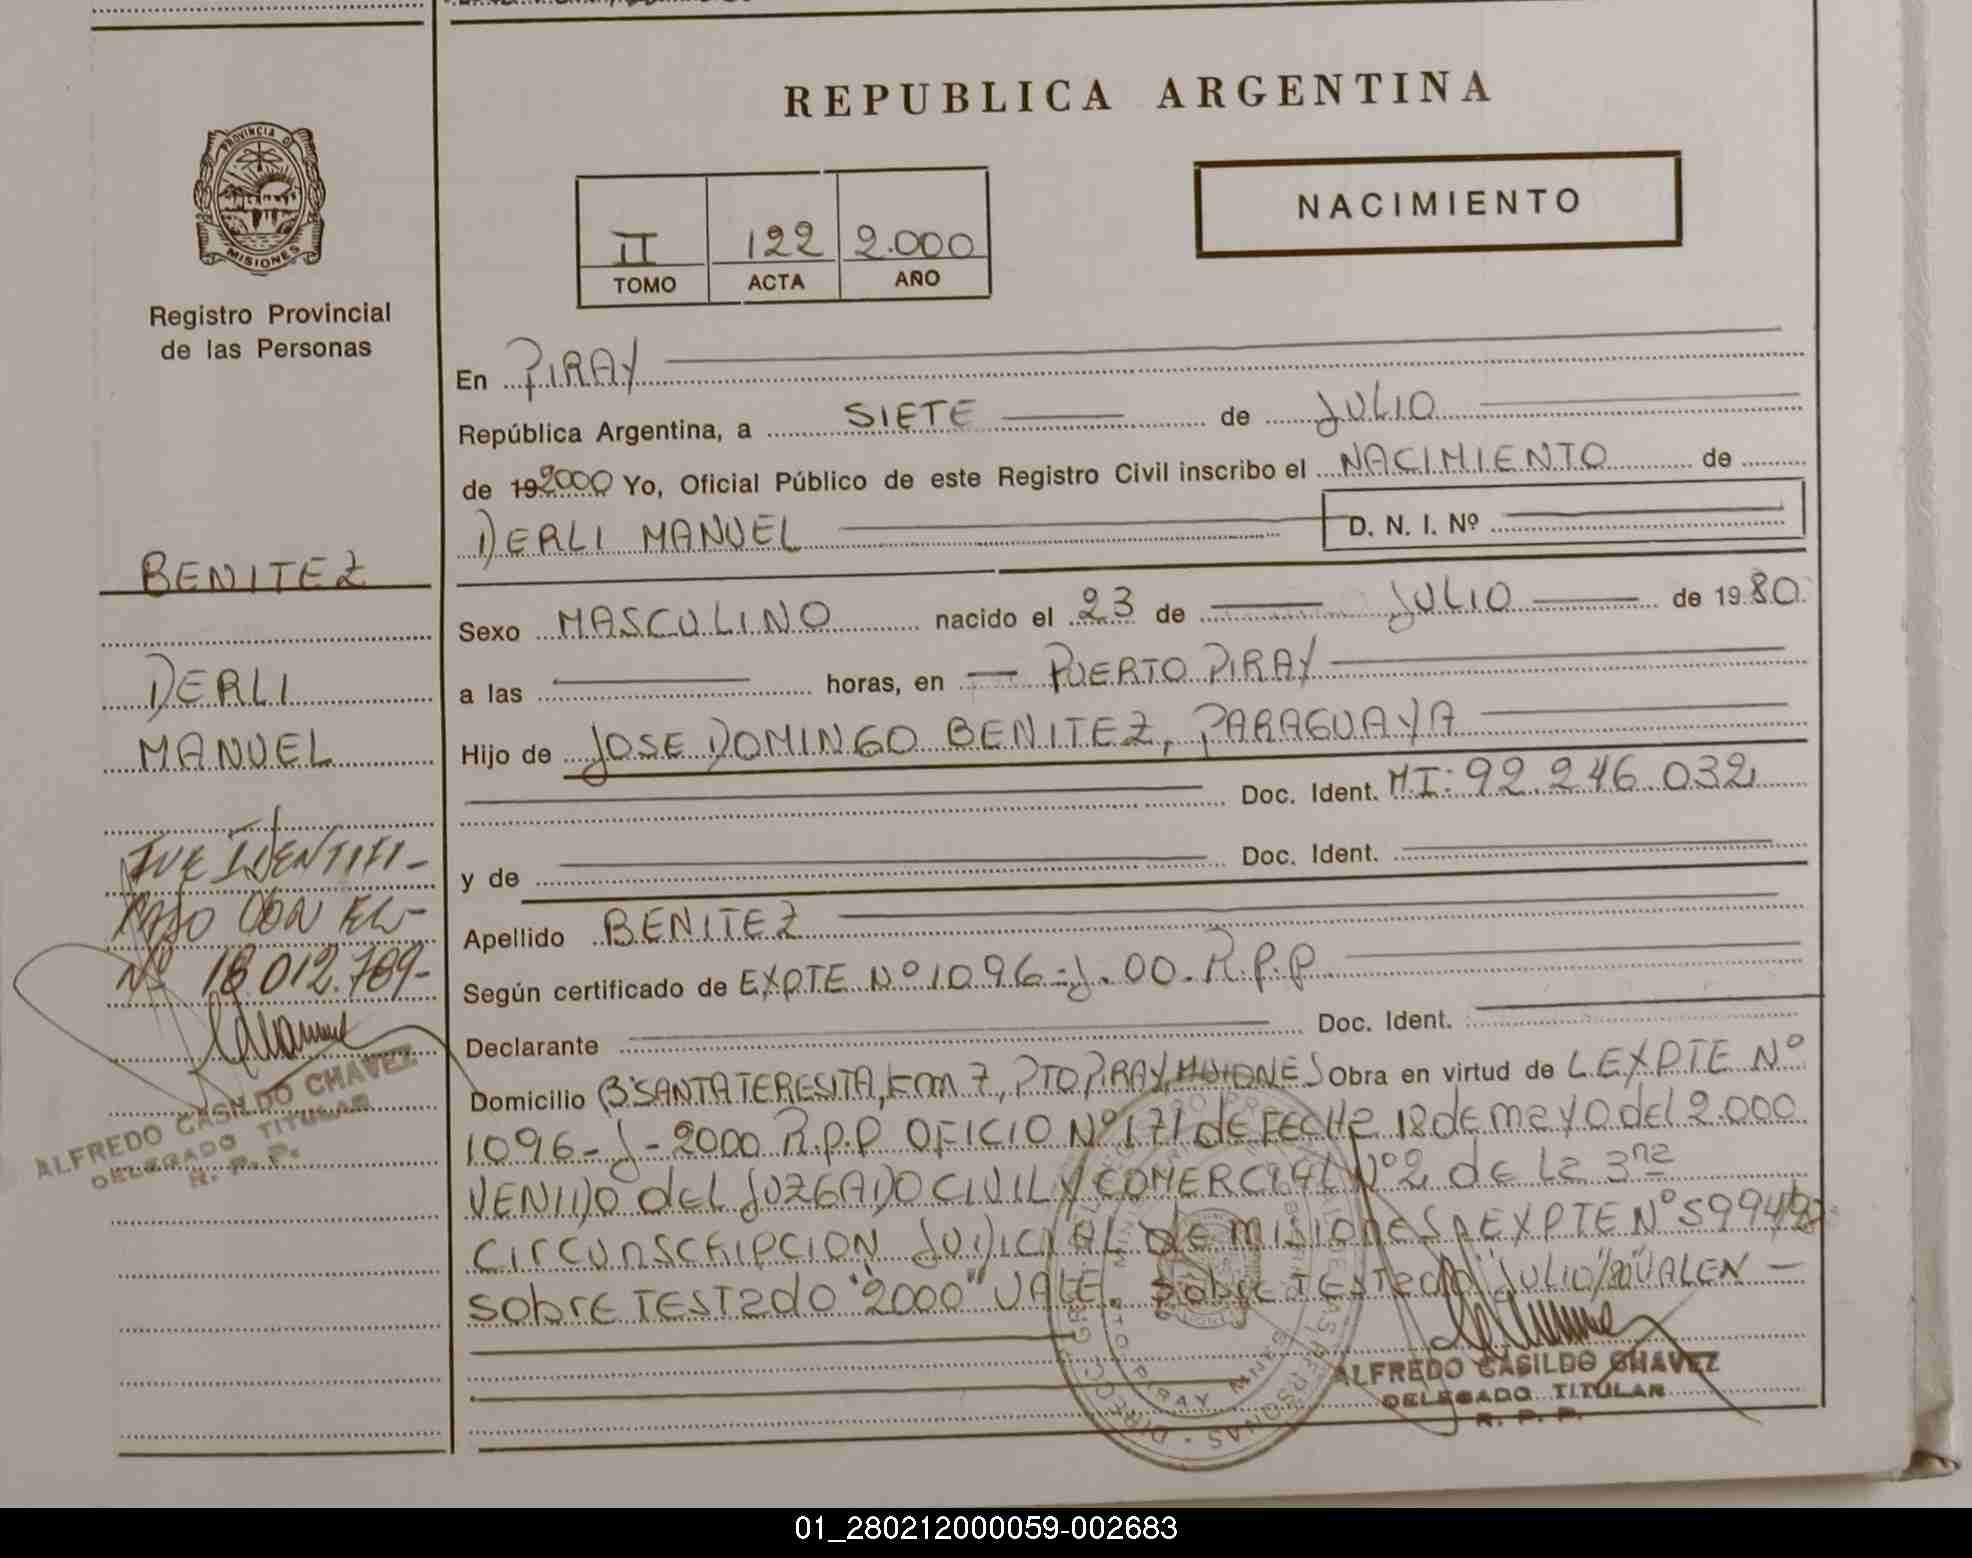 REPUBLICA ARGENTINA
PROVINCIA DE
MISIONES
Registro Provincial
de las Personas
NACIMIENTO
II 122 2.000
TOMO ACTA AÑO
En PIRAY
República Argentina, a SIETE de JULIO
de 192000 Yo, Oficial Público de este Registro Civil inscribo el NACIMIENTO de
DERLI MANUEL D. N. I. Nº
Sexo MASCULINO nacido el 23 de JULIO de 1980
a las horas, en PUERTO PIRAY
Hijo de JOSE DOMINGO BENITEZ, PARAGUAYA
Doc. Ident. MI: 92.246.032
y de Doc. Ident.
Apellido BENITEZ
Según certificado de EXPTE Nº 1096-J.00.R.P.P
Declarante Doc. Ident.
Domicilio Bº SANTA TERESITA, Km 7, PTO PIRAY, MISIONES Obra en virtud de L EXPTE Nº
1096-J-2000 R.P.P OFICIO Nº 171 de FECHA 18 de mayo del 2.000
VENIDO del JUZGADO CIVIL Y COMERCIAL Nº 2 de la 3ra
CIRCUNSCRIPCION JUDICIAL de MISIONES EXPTE Nº
sobre Testado "2000" VALE. sobre Testado "JULIO" VALEN
ALFREDO CASILDO CHAVEZ
DELEGADO TITULAR
R. P. P.
BENITEZ
DERLI
MANUEL
FUE IDENTIFI-
CADO CON EL-
Nº 18.012.789-
ALFREDO CASILDO CHAVEZ
DELEGADO TITULAR
R. P. P.
PTO PIRAY MNES
01_280212000059-002683